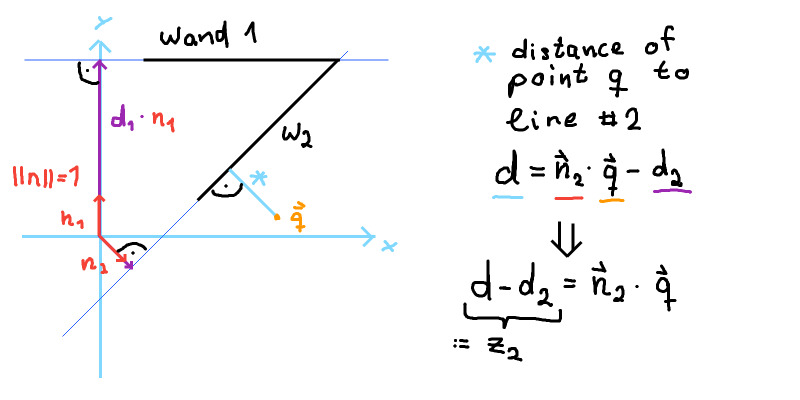 y
wand 1
d₁ · n₁
w₂
||n||=1
n₁
*
q⃗
n₂
x
* distance of
point q to
line #2
d = n⃗₂ · q⃗ - d₂
⇓
d - d₂ = n⃗₂ · q⃗
:= z₂